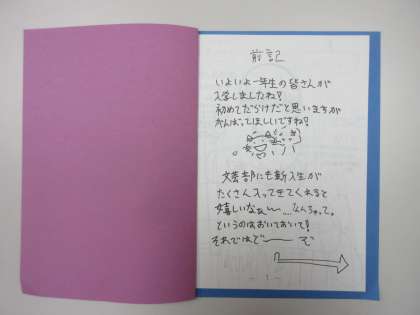 前記
いよいよ一年生の皆さんが
入学しましたね!
初めてだらけだと思いますが
がんばってほしいですね!
文芸部にも新入生が
たくさん入ってきてくれると
嬉しいなぁ〜...なんちゃって。
というのはおいておいて!
それではど〜〜ぞ
- 1 -